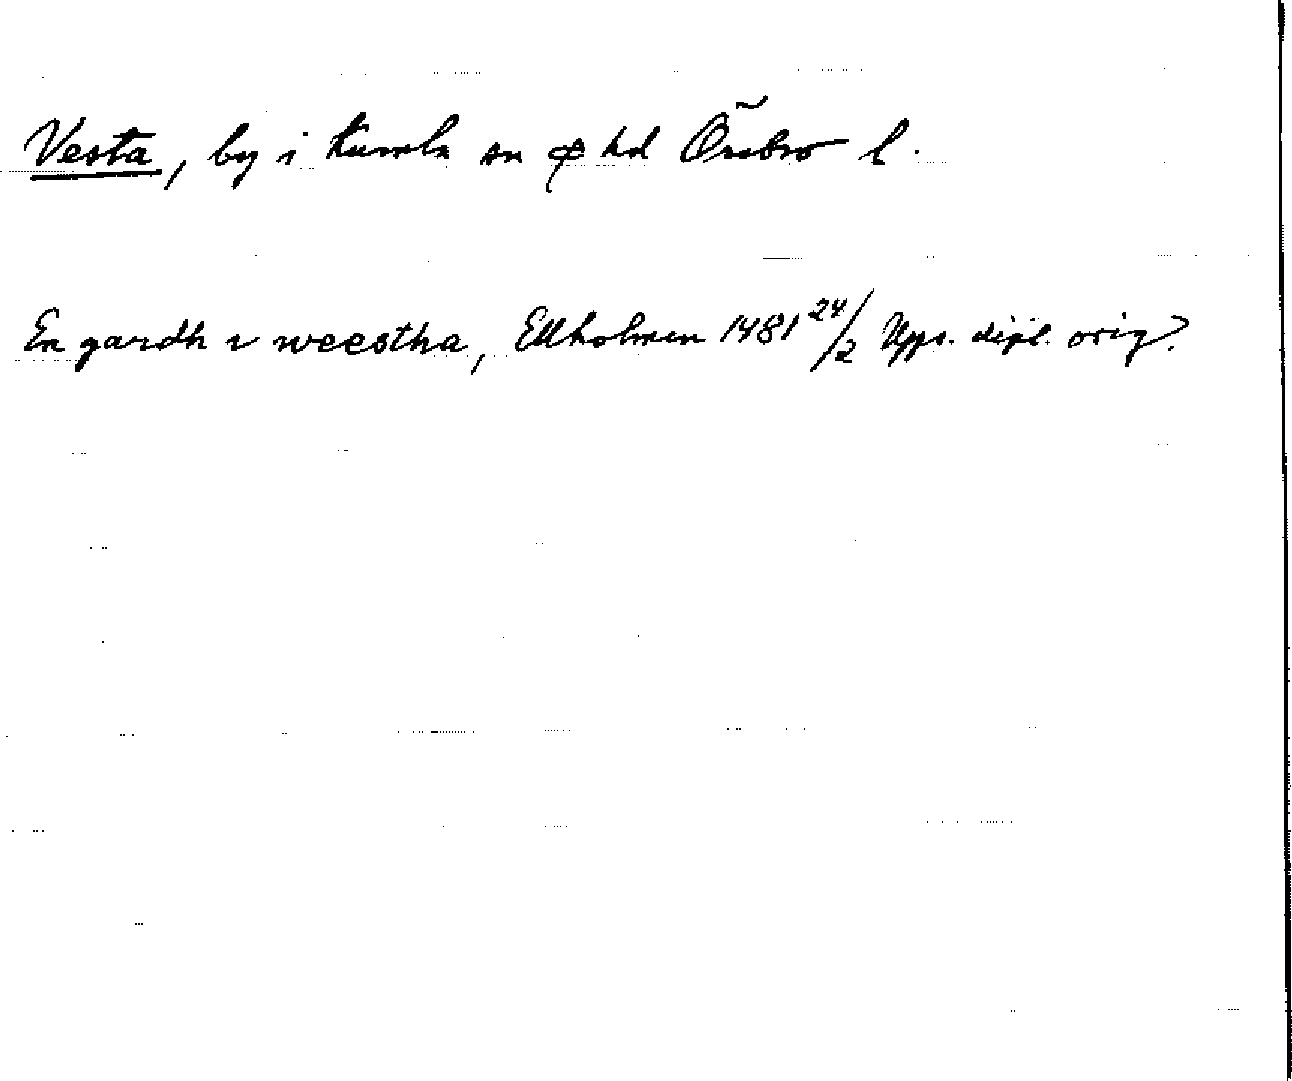 Vesta, by i Kumla sn o hd Örebro l.
En gardh i weestha, Ekholmen 1481 24/2 Upps. dipl. orig.